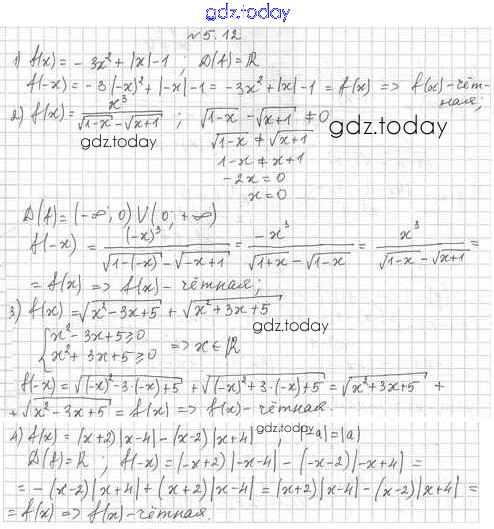 gdz.today
№5.12
1) f(x) = -3x² + |x| - 1 ; D(f) = ℝ
f(-x) = -3(-x)² + |-x| - 1 = -3x² + |x| - 1 = f(x) => f(x) - чёт-
ная;
2) f(x) = x³ / (√(1-x) - √(x+1)) ; √(1-x) - √(x+1) ≠ 0
gdz.today
√(1-x) ≠ √(x+1)
gdz.today
1-x ≠ x+1
-2x = 0
x = 0
D(f) = (-∞; 0) ∪ (0; +∞)
f(-x) = (-x)³ / (√(1-(-x)) - √(-x+1)) = -x³ / (√(1+x) - √(1-x)) = x³ / (√(1-x) - √(x+1)) =
= f(x) => f(x) - чётная;
3) f(x) = √(x² - 3x + 5) + √(x² + 3x + 5)
gdz.today
{ x² - 3x + 5 ≥ 0
x² + 3x + 5 ≥ 0 => x ∈ ℝ
f(-x) = √((-x)² - 3·(-x) + 5) + √((-x)² + 3·(-x) + 5) = √(x² + 3x + 5) +
+ √(x² - 3x + 5) = f(x) => f(x) - чётная.
gdz.today
4) f(x) = (x+2)|x-4| - (x-2)|x+4| ; |-a| = |a|
D(f) = ℝ ; f(-x) = (-x+2)|-x-4| - (-x-2)|-x+4| =
= -(x-2)|x+4| + (x+2)|x-4| = (x+2)|x-4| - (x-2)|x+4| =
= f(x) => f(x) - чётная.
gdz.today